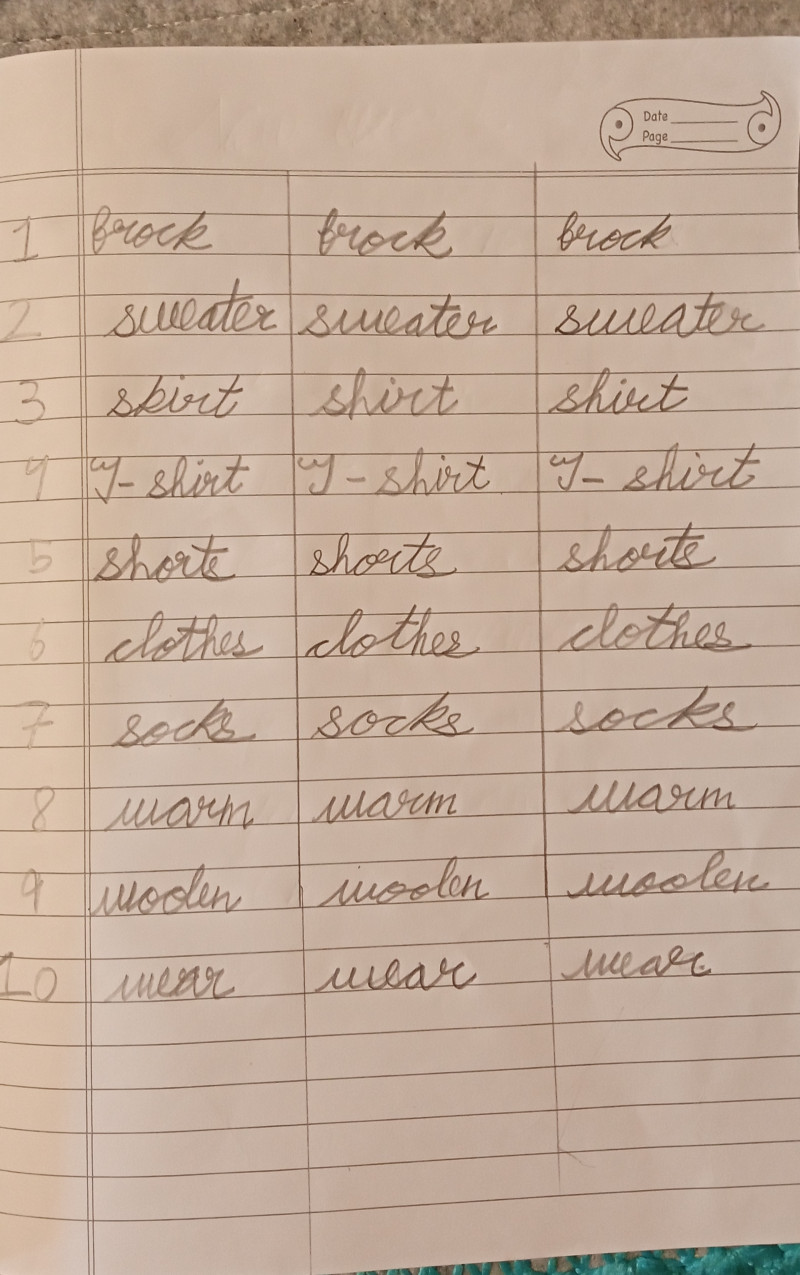 Date
Page
1 brock brock brock
2 sweater sweater sweater
3 skirt shirt shirt
4 T-shirt T-shirt T-shirt
5 shorts shorts shorts
6 clothes clothes clothes
7 socks socks socks
8 warm warm warm
9 woolen woolen woolen
10 wear wear wear